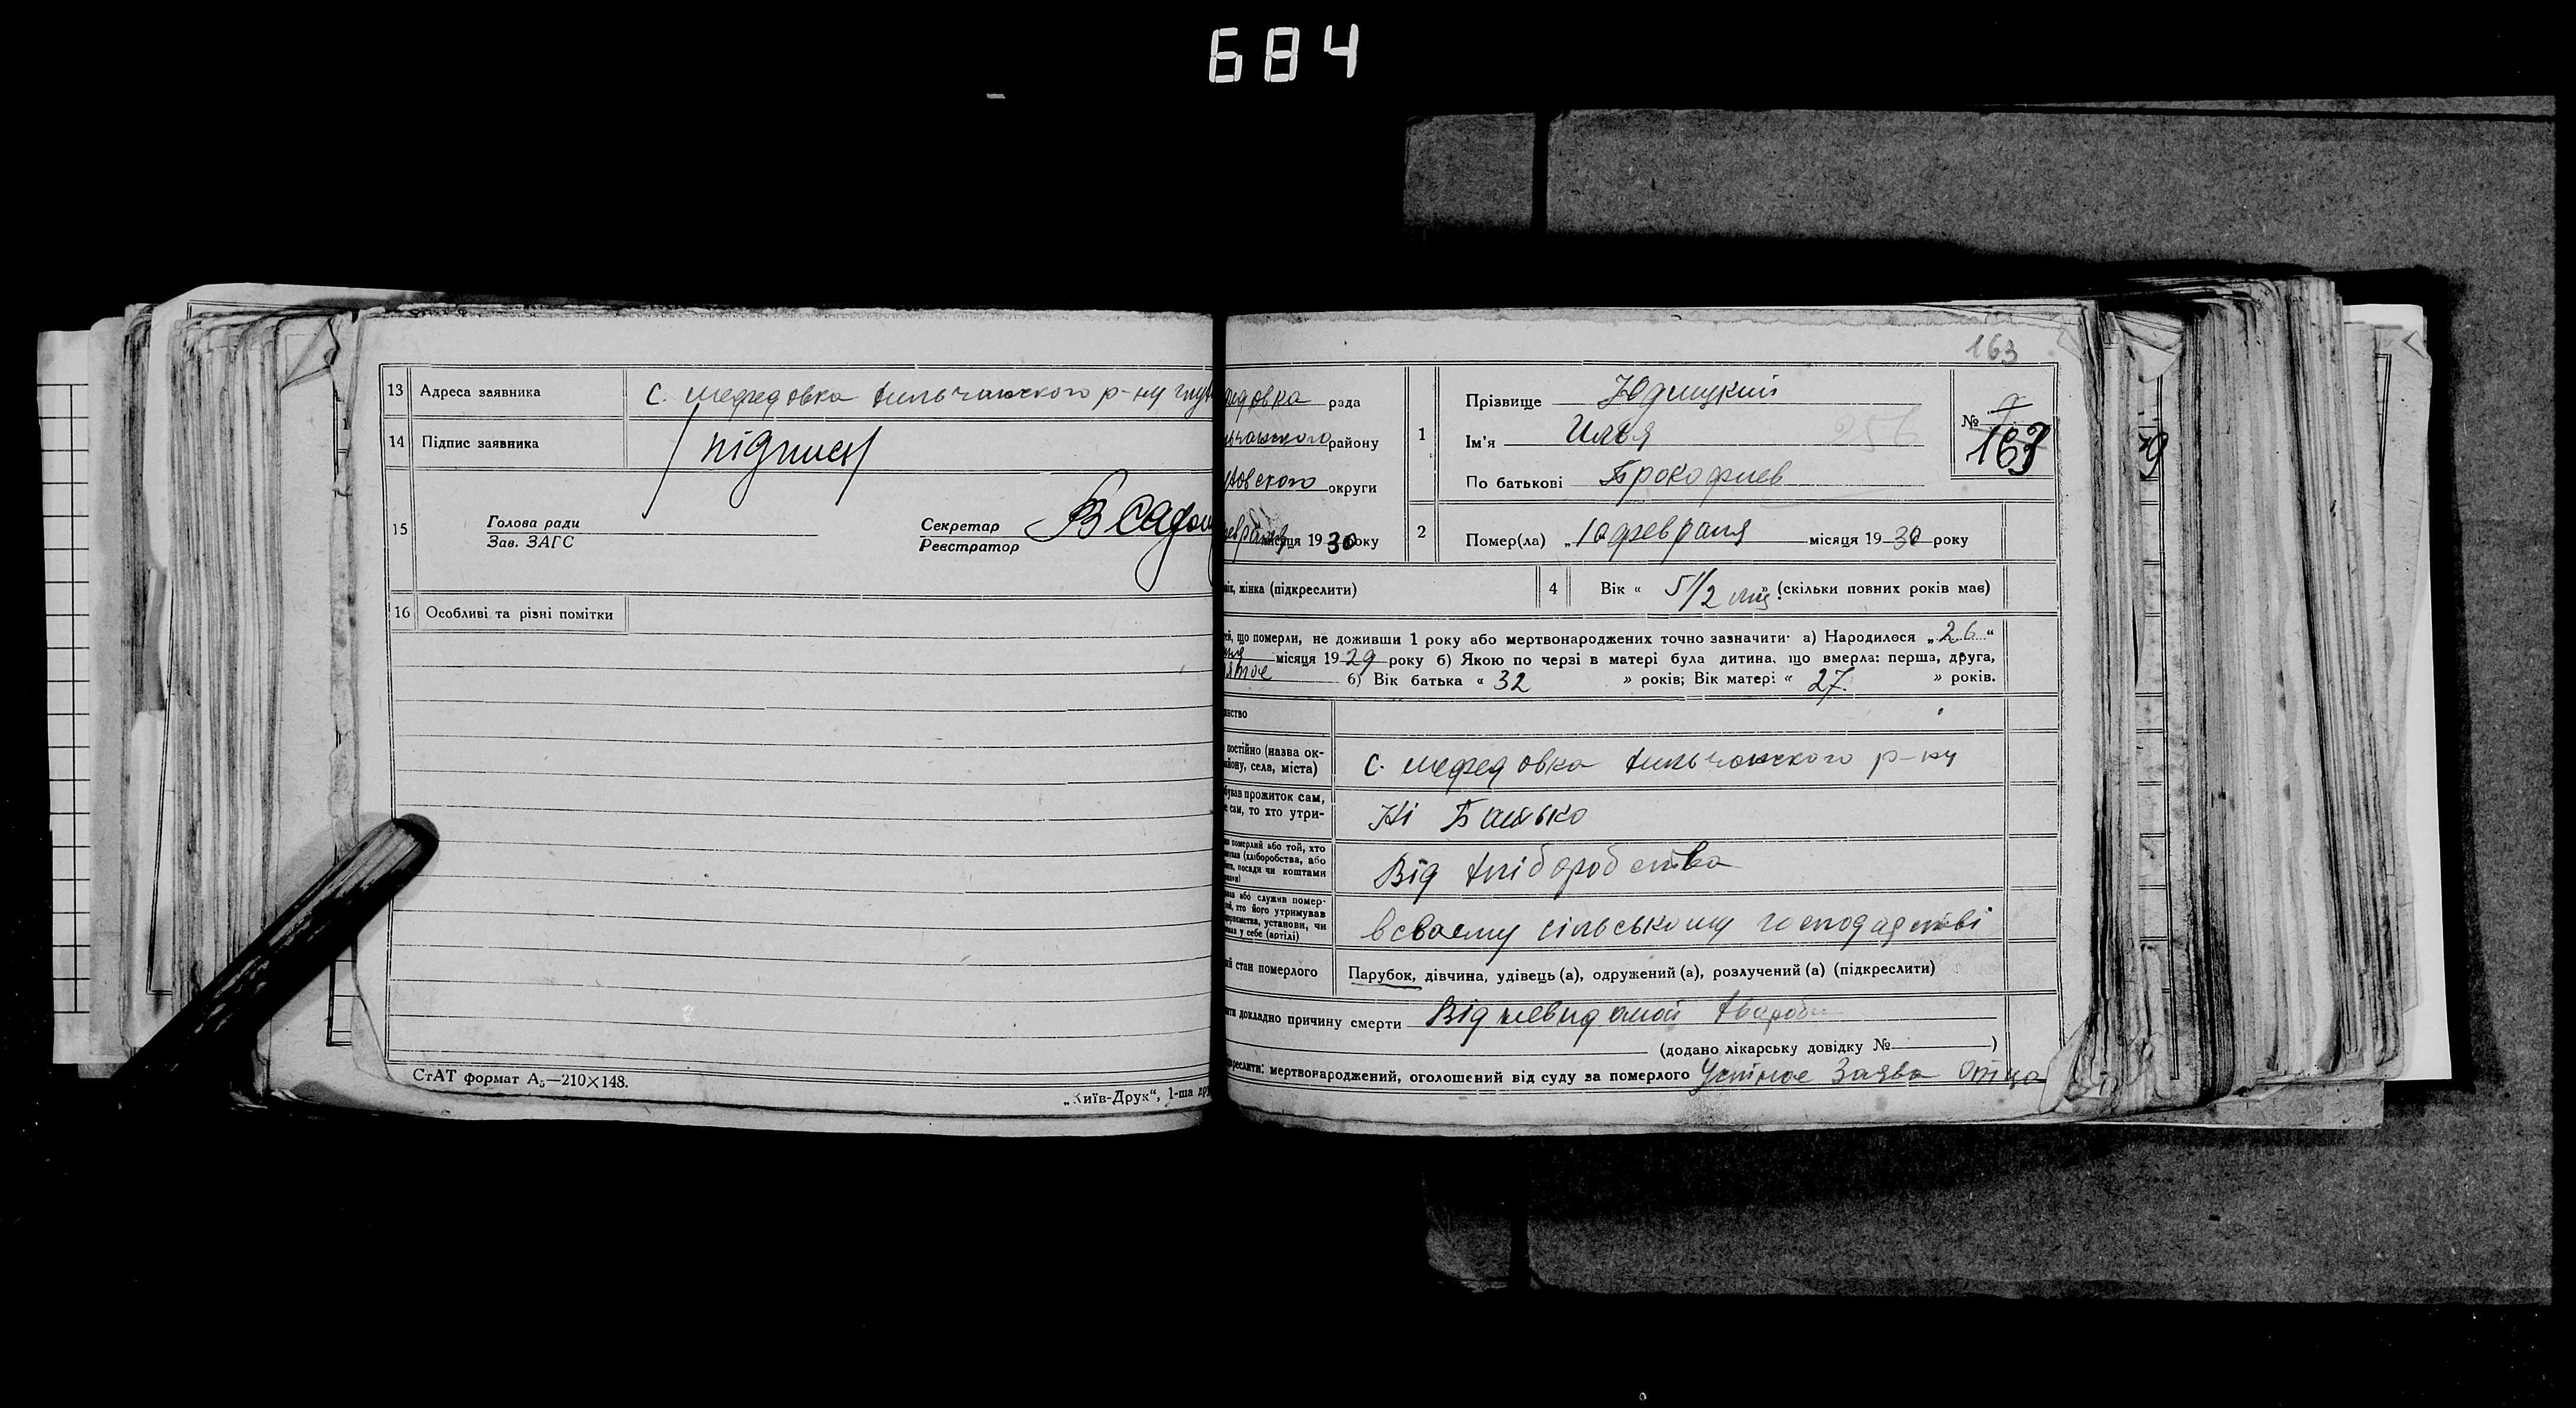 684
13 Адреса заявника с. медведовка хильчанского р-ну
14 Підпис заявника /підпись/
15 Голова ради
Зав. ЗАГС
Секретар
Реєстратор
16 Особливі та різні помітки
СтАТ формат А₅—210×148.
„Київ-Друк“, 1-ша
163
рада
району
округи
місяця 1930 року
1 Прізвище Юдицкий
Ім'я Илья 256
По батькові Прокофиев
№ 9
163
2 Помер(ла) „10 февраля місяця 1930 року
жінка (підкреслити)
4 Вік « 5 1/2 » (скільки повних років має)
що померли, не доживши 1 року або мертвонароджених точно зазначити: а) Народилося „26“
місяця 1929 року б) Якою по черзі в матері була дитина, що вмерла: перша, друга,
б) Вік батька « 32 » років; Вік матері « 27. » років.
постійно (назва ок-
села, міста) с. медведовка хильчанского р-ну
прожиток сам,
сам, то хто утри- Ні Батько
померлий або той, хто
(хліборобства, або
посади чи коштами
Від хліборобства
або служив помер-
хто його утримував
установи, чи
у себе (артілі)
в сваєму сільському господарстві
стан померлого Парубок, дівчина, удівець (а), одружений (а), розлучений (а) (підкреслити)
докладно причину смерти Від невидомой хвороби
(додано лікарську довідку № )
мертвонароджений, оголошений від суду за померлого Устное Заява Отца